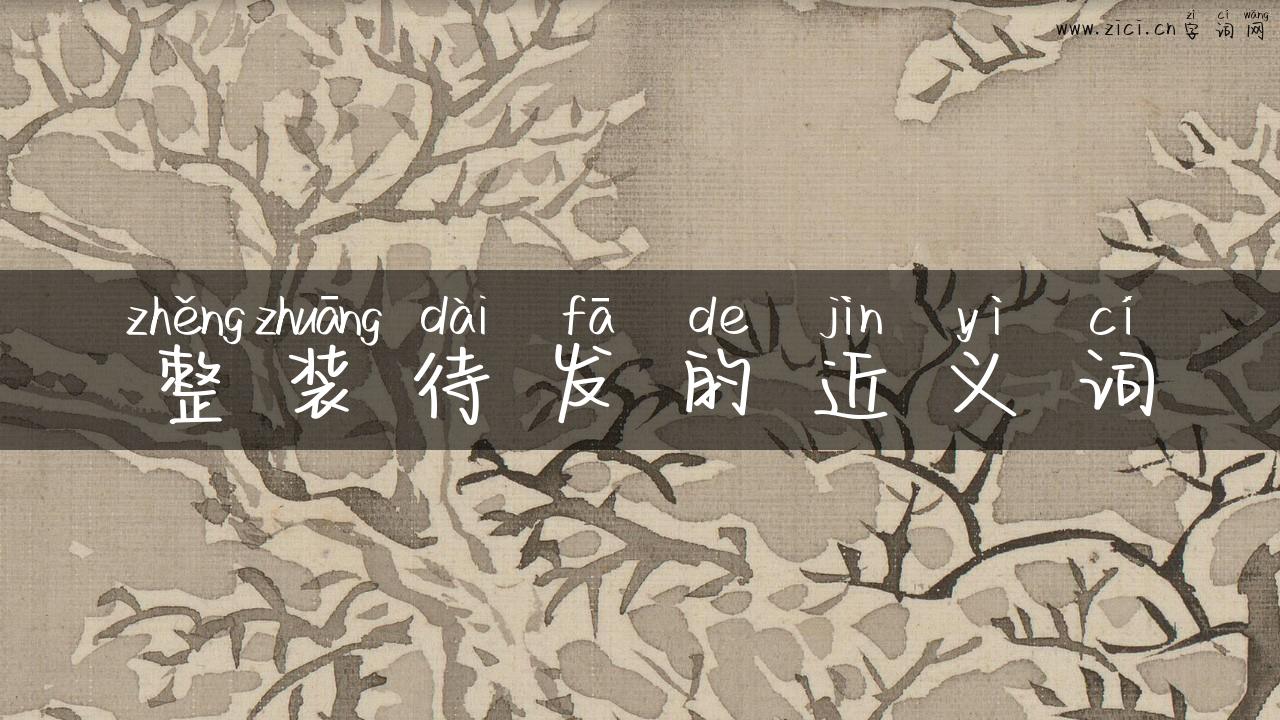 zì cí wǎng
www.zici.cn字词网
zhěng zhuāng dài fā de jìn yì cí
整装待发的近义词